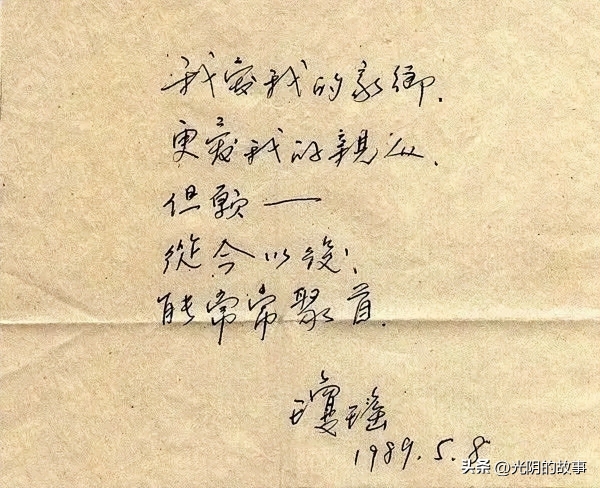 我愛我的家鄉.
更愛我的親人.
但願——
從今以後,
能常常聚首.
瓊瑤
1989.5.8
头条 @光阴的故事